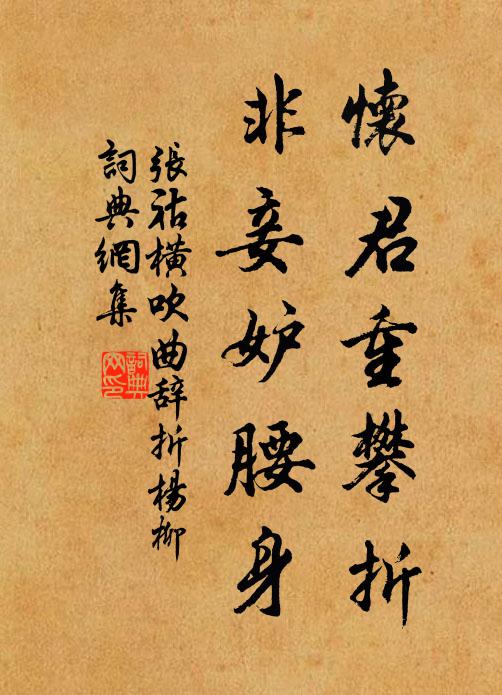 懷君重攀折
非妾妒腰身
張祜橫吹曲辞折楊柳
詞典網集
詞典网印